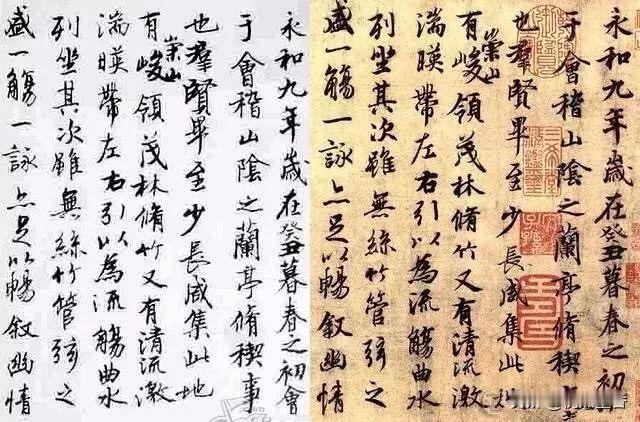 永和九年歲在癸丑暮春之初會
于會稽山陰之蘭亭脩稧事
也羣賢畢至少長咸集此地
有崇山峻領茂林脩竹又有清流激
湍暎帶左右引以為流觴曲水
列坐其次雖無絲竹管弦之
盛一觴一詠亦足以暢敘幽情
永和九年歲在癸丑暮春之初
于會稽山陰之蘭亭脩稧
也羣賢畢至少長咸集此地
有崇山峻領茂林脩竹又有清流激
湍暎帶左右引以為流觴曲水
列坐其次雖無絲竹管弦之
盛一觴一詠亦足以暢敘幽情